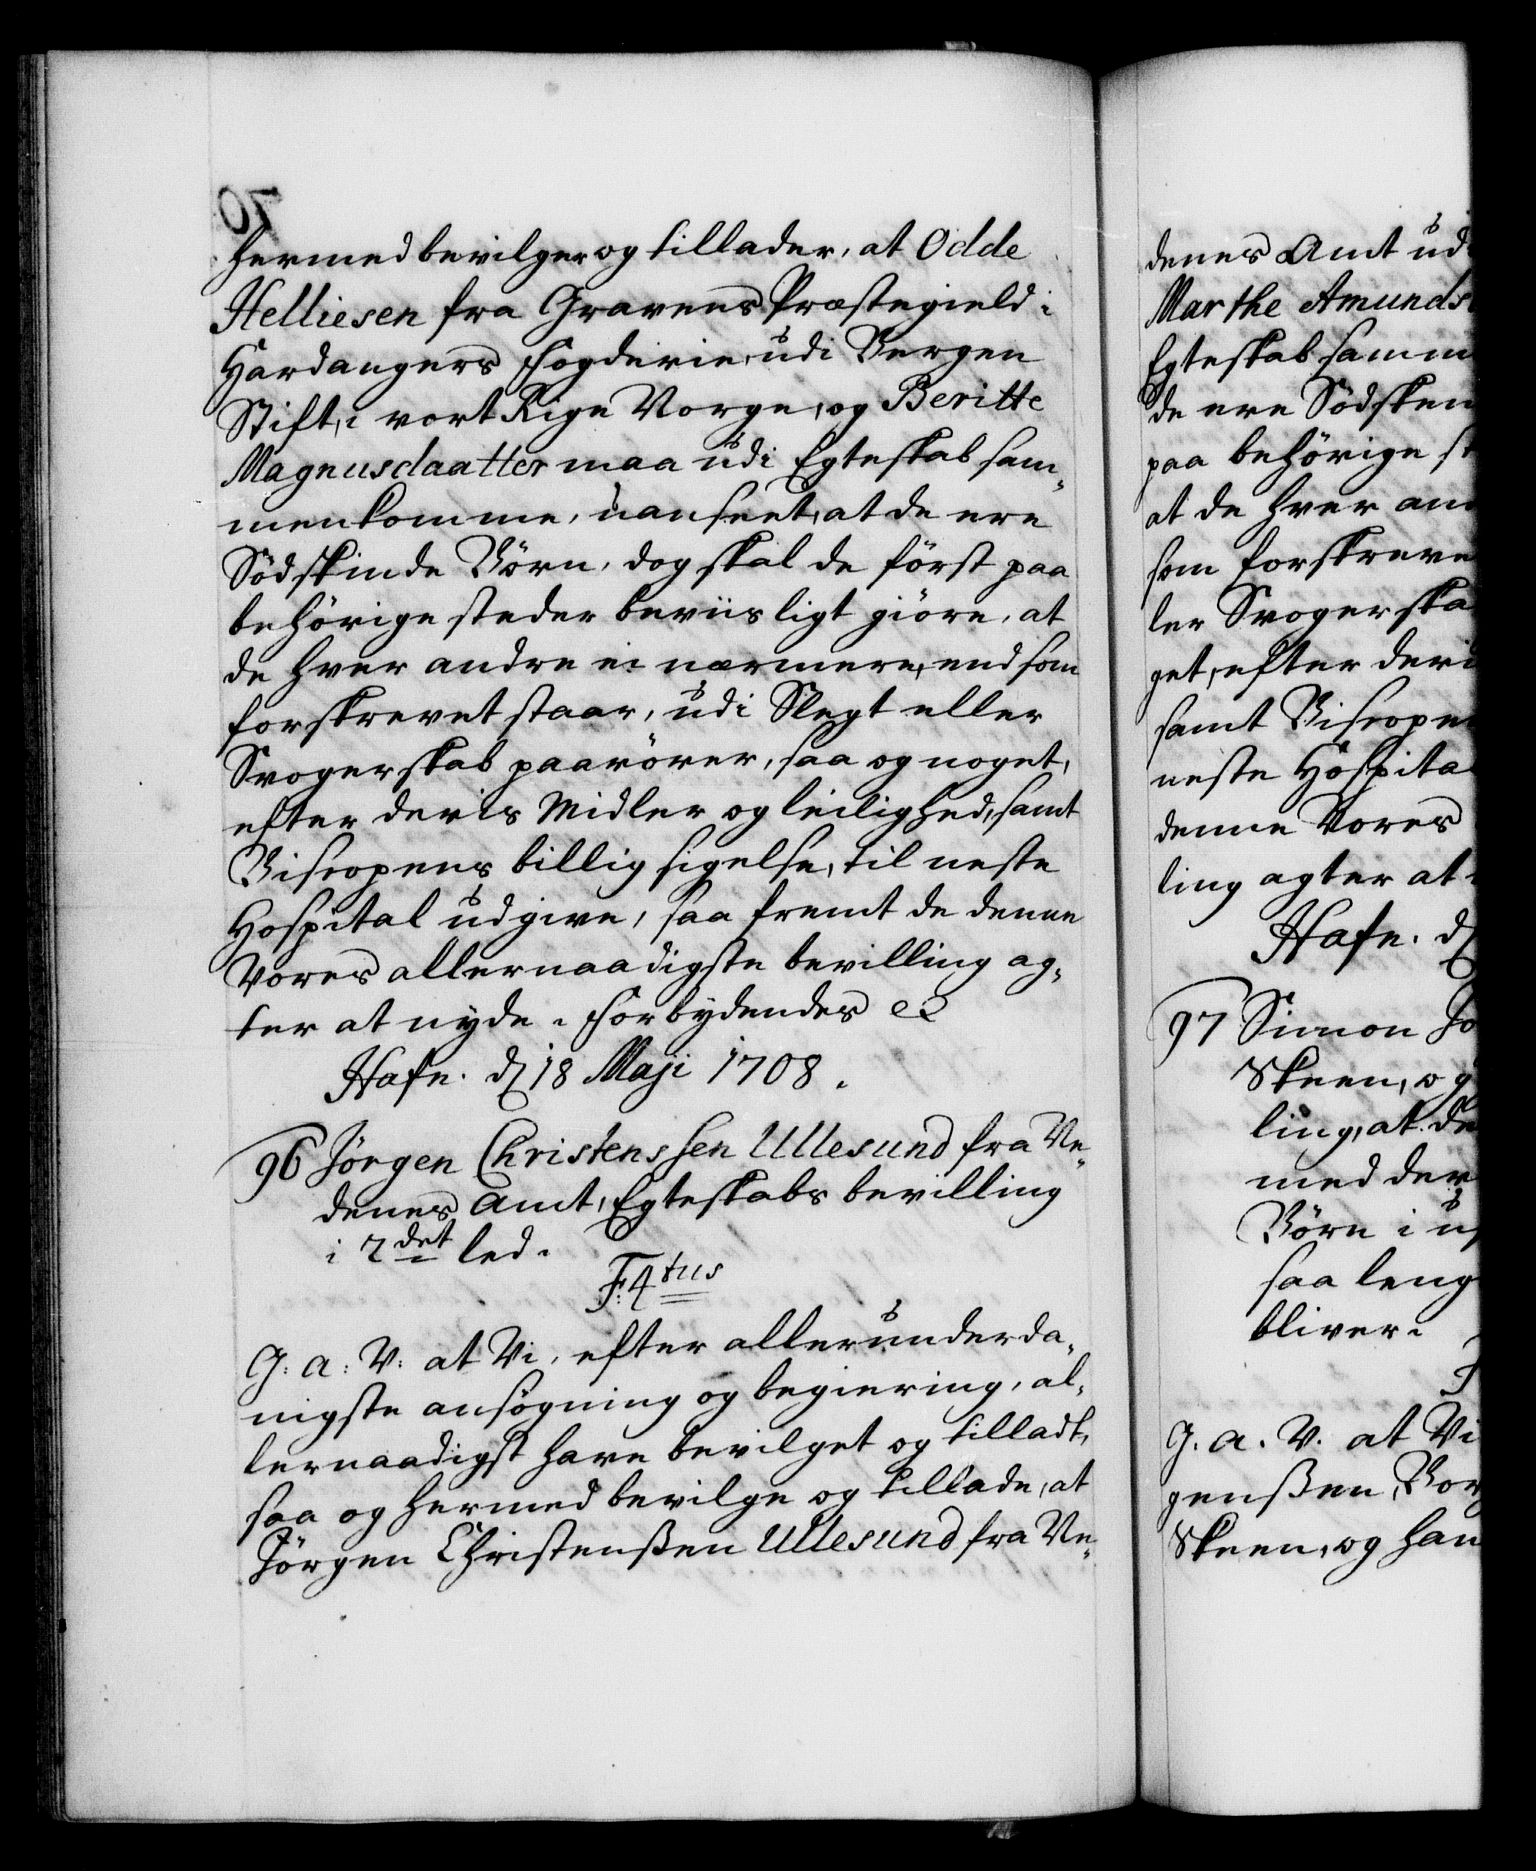 hermed bevilger og tillader, at Odde
Helliesen fra Gravens Præstegield i
Hardangers Fogderie, udi Bergen
Stift, i vort Rige Norge, og Beritte
Magnusdaatter maa udi Egteskab sam„
menkomme, uanseet, at de ere
Sødskinde Børn, dog skal de først paa
behørige steder beviisligt giøre, at
de hver andre ei nærmere, end som
forskrevet staar, udi Slegt eller
Svogerskab paarører, saa og noget,
efter deris Midler og leilighed, samt
Biscopens billig sigelse, til neste
Hospital udgive, saa fremt de denne
Vores allernaadigste bevilling ag„
ter at nyde. Forbydendes &c
Hafn. d 18 Maji 1708.
96 Jørgen Christenssen Ullesund fra Ne„
denes Amt, Egteskabs bevilling
i 2det led.
F: 4tus
G: A: V: at Vi, efter allerunderda„
nigste ansøgning og begiering, al„
lernaadigst have bevilget og tilladt,
saa og hermed bevilge og tillade, at
Jørgen Christenßen Ullesund fra Ne„
denes Amt ud
Marthe Amunds
Egteskab samm
de ere Sødsken
paa behørige st
at de hver an
som forskreve
ler Svogerska
get, efter deri
samt Biscope
neste Hospita
denne Vores
ling agter at
Hafn. d
97 Simon Jo
Skeen, og
ling, at de
med der
Børn i u
saa leng
bliver.
G. A. V. at Vi
genßen, Bor
Skeen, og han